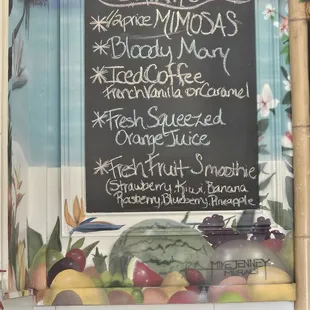 *½ price MIMOSAS
*Bloody Mary
*Iced Coffee
French Vanilla or Caramel
*Fresh Squeezed
Orange Juice
*Fresh Fruit Smoothie
(Strawberry, Kiwi, Banana
Raspberry, Blueberry, Pineapple
MIKE JENNEY
MURALS